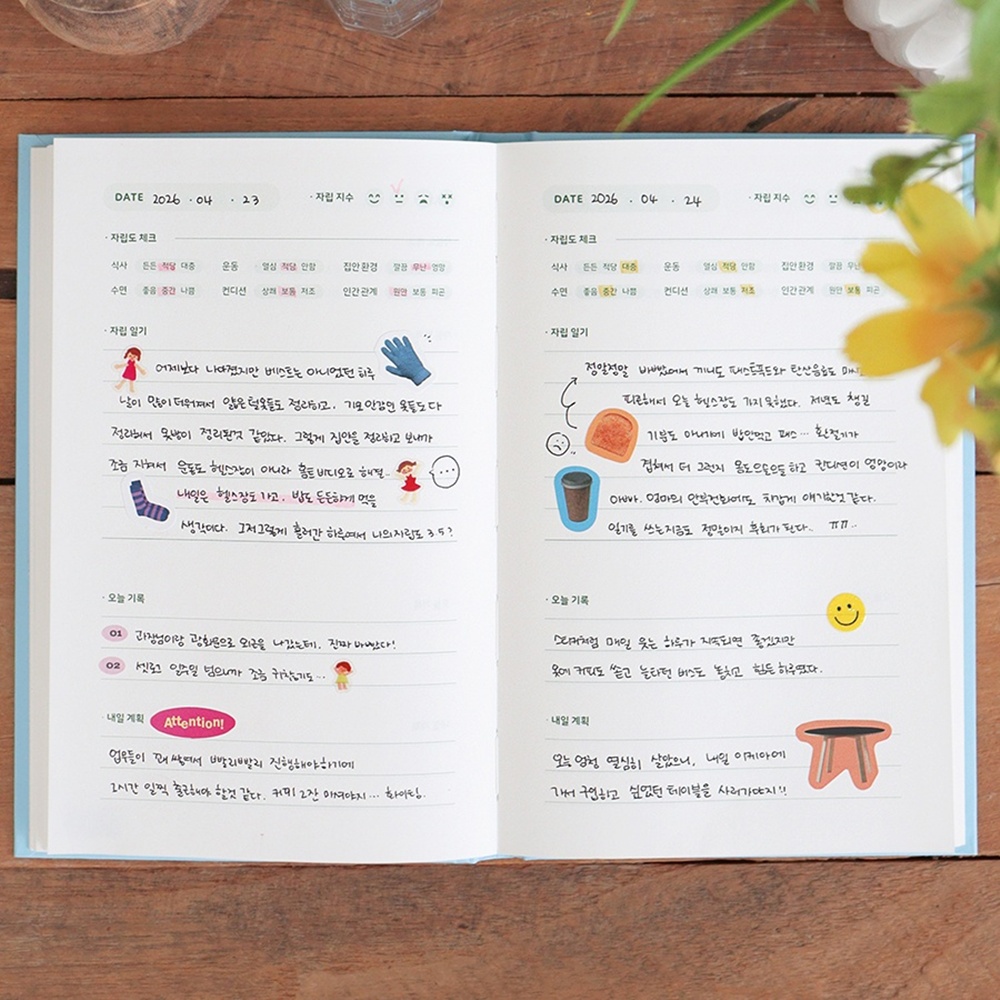 DATE 2026 . 04 . 23 · 자립 지수
· 자립도 체크
식사 든든 적당 대충 운동 열심 적당 안함 집안 환경 말끔 무난 엉망
수면 좋음 중간 나쁨 컨디션 상쾌 보통 저조 인간 관계 원만 보통 피곤
· 자립 일기
어제보다 나아졌지만 베스트는 아니었던 하루
날이 많이 더워져서 얇은 털옷들도 정리하고, 기모 안감인 옷들도 다
정리해서 옷방이 정리된것 같았다. 그렇게 집안을 정리하고 보니까
조금 지쳐서 운동도 헬스장이 아니라 홈트 비디오로 해결..
내일은 헬스장도 가고, 밥도 든든하게 먹을
생각이다. 그저그렇게 흘러간 하루여서 나의 자립도 3.5?
· 오늘 기록
01 과장님이랑 광화문으로 외근을 나갔는데, 진짜 바빴다!
02 셋로그 일주일 넘으니까 조금 귀찮기도...
· 내일 계획 Attention!
업무들이 꽤 쌓여서 빠릴빠릴리 진행해야하기에
1시간 일찍 출근해야 할것 같다. 커피 2잔 마셔야지... 화이팅.
DATE 2026 . 04 . 24 · 자립 지수
· 자립도 체크
식사 든든 적당 대충 운동 열심 적당 안함 집안 환경 말끔 무난
수면 좋음 중간 나쁨 컨디션 상쾌 보통 저조 인간 관계 원만 보통 피곤
· 자립 일기
정말정말 바빴어서 끼니도 패스트푸드와 탄산음료도 마시
피곤해서 오늘 헬스장도 가지 못했다. 저녁도 챙길
기분도 아니기에 밥안먹고 패스... 환절기가
겹쳐서 더 그런지 몸도 으슬으슬하고 컨디션이 엉망이라
아빠, 엄마의 안부전화에도 차갑게 얘기한것 같다.
일기를 쓰는 지금도 정말이지 후회가 된다.. ㅠㅠ..
· 오늘 기록
스티커처럼 매일 웃는 하루가 지속되면 좋겠지만
옷에 커피도 쏟고 늘 타던 버스도 놓치고 힘든 하루였다.
· 내일 계획
오늘 엄청 열심히 살았으니, 내일 이케아에
가서 구경하고 싶었던 테이블을 사러가야지!!